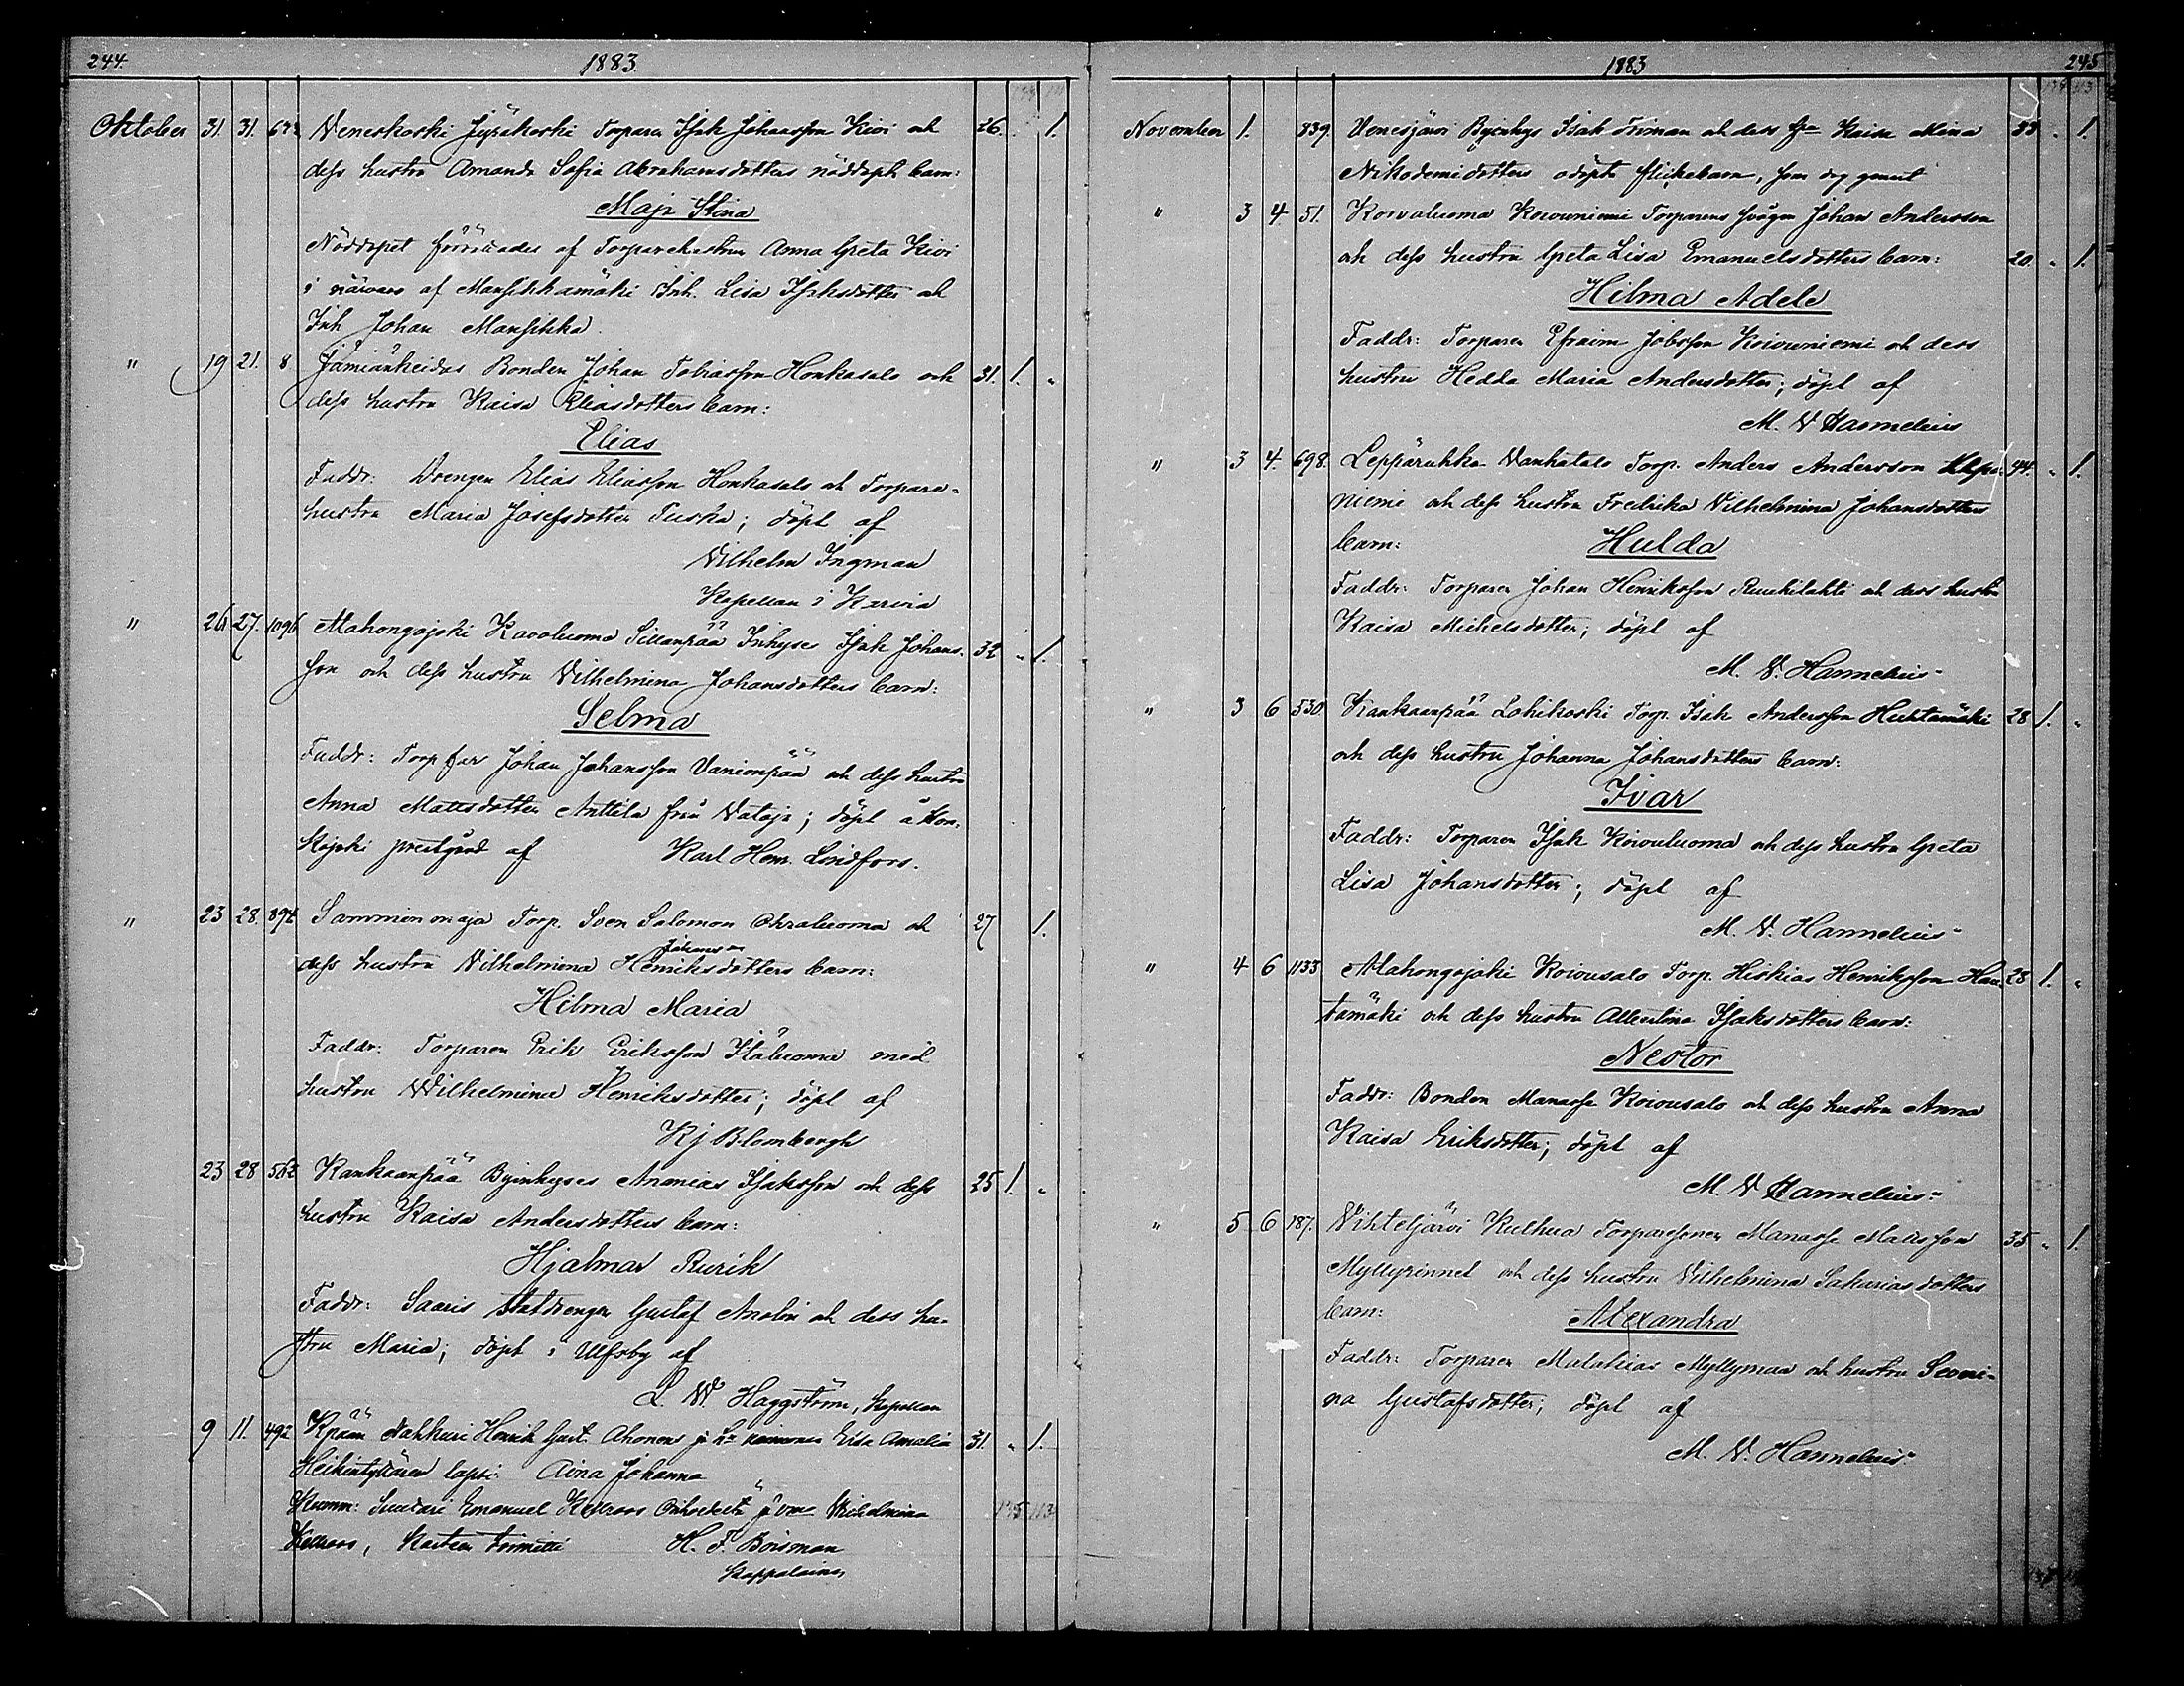 244. 1883.
Oktober 31. 31. Veneskoski Jyräkoski Torparen Isak Johansson Kivi och 26. 1.
dess hustru Amanda Sofia Abrahamsdotters nöddöpt barn:
Maja Stina
Nöddopet förrättades af Torparehustrun Anna Greta Kivi
i närvaro af Mansikkamäki Inh. Lisa Isaksdotter och
Inh Johan Mansikka.
" 19 21. 8 Jämiänkeidas Bonden Johan Tobiasson Honkasalo och 31. 1. "
dess hustru Kaisa Eliasdotters barn:
Elias
Faddr: Drengen Elias Eliasson Honkasalo och Torpare-
hustru Maria Josefsdotter Tuska; döpt af
Vilhelm Ingman
Kapellan i Karvia
" 26 27. 1096 Mahongojoki Kavoluoma Sillanpää Inhyses Isak Johans- 32 " 1.
son och dess hustru Vilhelmina Johansdotters barn:
Selma
Faddr: Torpfar Johan Johansson Vanionpää och dess hustru
Anna Mattsdotter Anttila från Vataja; döpt å Hon-
kajoki prestgård af Karl Henr. Lindfors.
" 23 28. 894 Sammin maja Torp. Sven Salomon Ohraluoma och 27 1.
Johanson
dess hustru Vilhelmina Henriksdotters barn:
Hilma Maria
Faddr: Torparen Erik Eriksson Itäluoma med
hustru Wilhelmina Henriksdotter; döpt af
Kj Blombergh
23 28. Kankaanpää Byinhyses Ananias Isaksson och dess 25 1. "
hustru Kaisa Andersdotters barn:
Hjalmar Rurik
Faddr: Saaris statdrengen Gustaf Anolin och dess hu-
stru Maria; döpt i Ulfsby af
L. W. Haggström, Kapellan
9 11. 492 Kpään Nahkuri Henrik Gust. Ahonen ja vaimonsa Eisa Amalia 31. " 1.
Heikintyttären lapsi Aina Johanna
Kumm: Suutari Emanuel Kellroos ja vmo Vilhelmina
Kellroos, Kasteen toimitti H. F. Boisman
Kappalainen
1883 245
November 1. 339. Venesjärvi Byinhys Isak Friman och dess hru Kaisa Mina 33 " 1.
Nikodemidotters odöpta flickebarn, som dog genast
" 3 4. 51. Korvaluoma Koivuniemi Torparens svåger Johan Andersson
och dess hustru Greta Lisa Emanuelsdotters barn: 20. " 1.
Hilma Adele
Faddr: Torparen Efraim Jobsson Koivuniemi och dess
hustru Hedda Maria Andersdotter; döpt af
M. V Hannelius
" 3 4. 698. Leppäruhka Vanhatalo Torp. Anders Andersson 44. " 1.
niemi och dess hustru Fredrika Vilhelmina Johansdotters
barn: Hulda
Faddr: Torparen Johan Henriksson Ruukilahti och dess hustru
Kaisa Michelsdotter; döpt af
M. V. Hannelius
" 3 6 530 Kankaanpää Lohikoski Torp. Isak Andersson Huhtamäki 28 1. "
och dess hustru Johanna Johansdotters barn:
Ivar
Faddr: Torparen Isak Koivuluoma och dess hustru Greta
Lisa Johansdotter; döpt af
M. V. Hannelius
" 4 6 1133 Mahongojoki Koivusalo Torp. Hiskias Henriksson Hau- 28 1. "
tamäki och dess hustru Albertina Isaksdotters barn:
Nestor
Faddr: Bonden Manasse Koivusalo och dess hustru Anna
Kaisa Eriksdotter; döpt af
M. V Hannelius
" 5 6 187. Vihteljärvi Kulhua Torparesonen Manasse Mattsson 35 " 1.
Myllyrinnet och dess hustru Vilhelmina Sakariasdotters
barn: Alexandra
Faddr: Torparen Malakias Myllymaa och hustru Serami-
na Gustafsdotter; döpt af
M. V. Hannelius